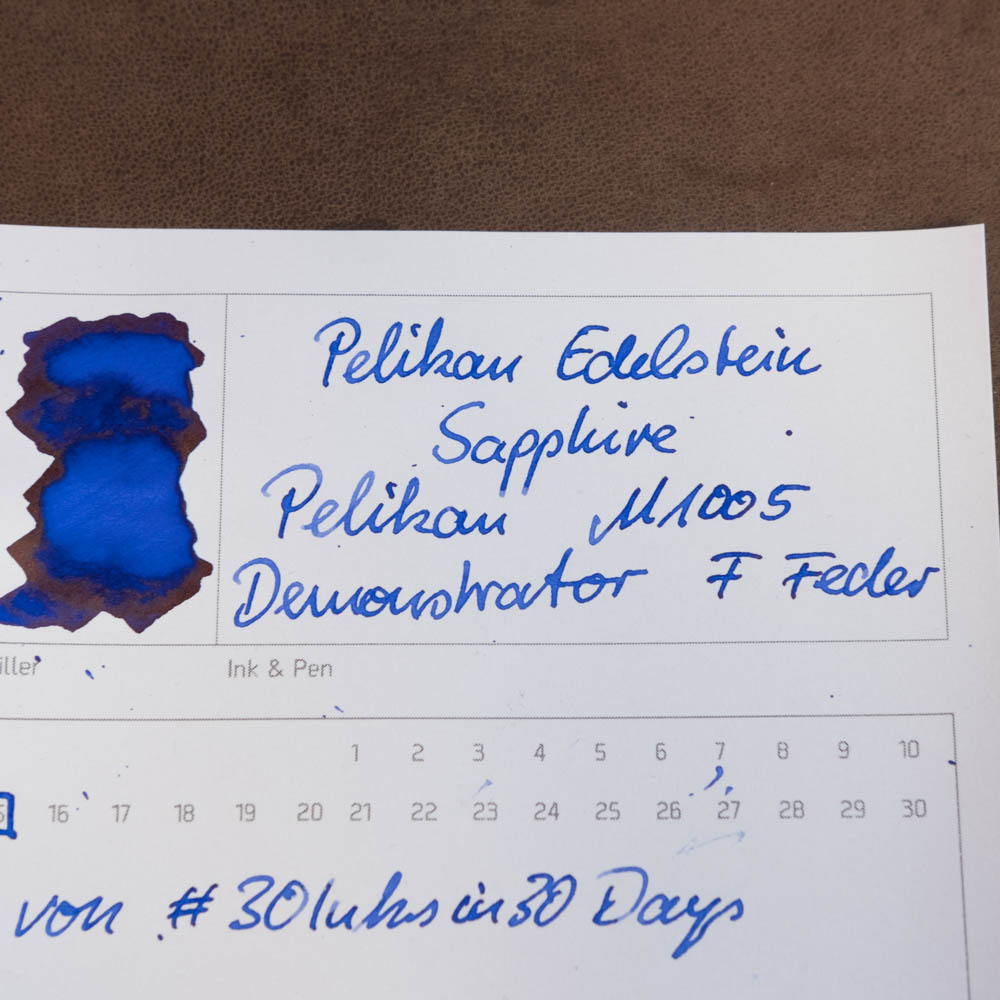 Pelikan Edelstein
Sapphire
Pelikan M1005
Demonstrator F Feder
Ink & Pen
1 2 3 4 5 6 7 8 9 10
16 17 18 19 20 21 22 23 24 25 26 27 28 29 30
von #30Inksin30Days